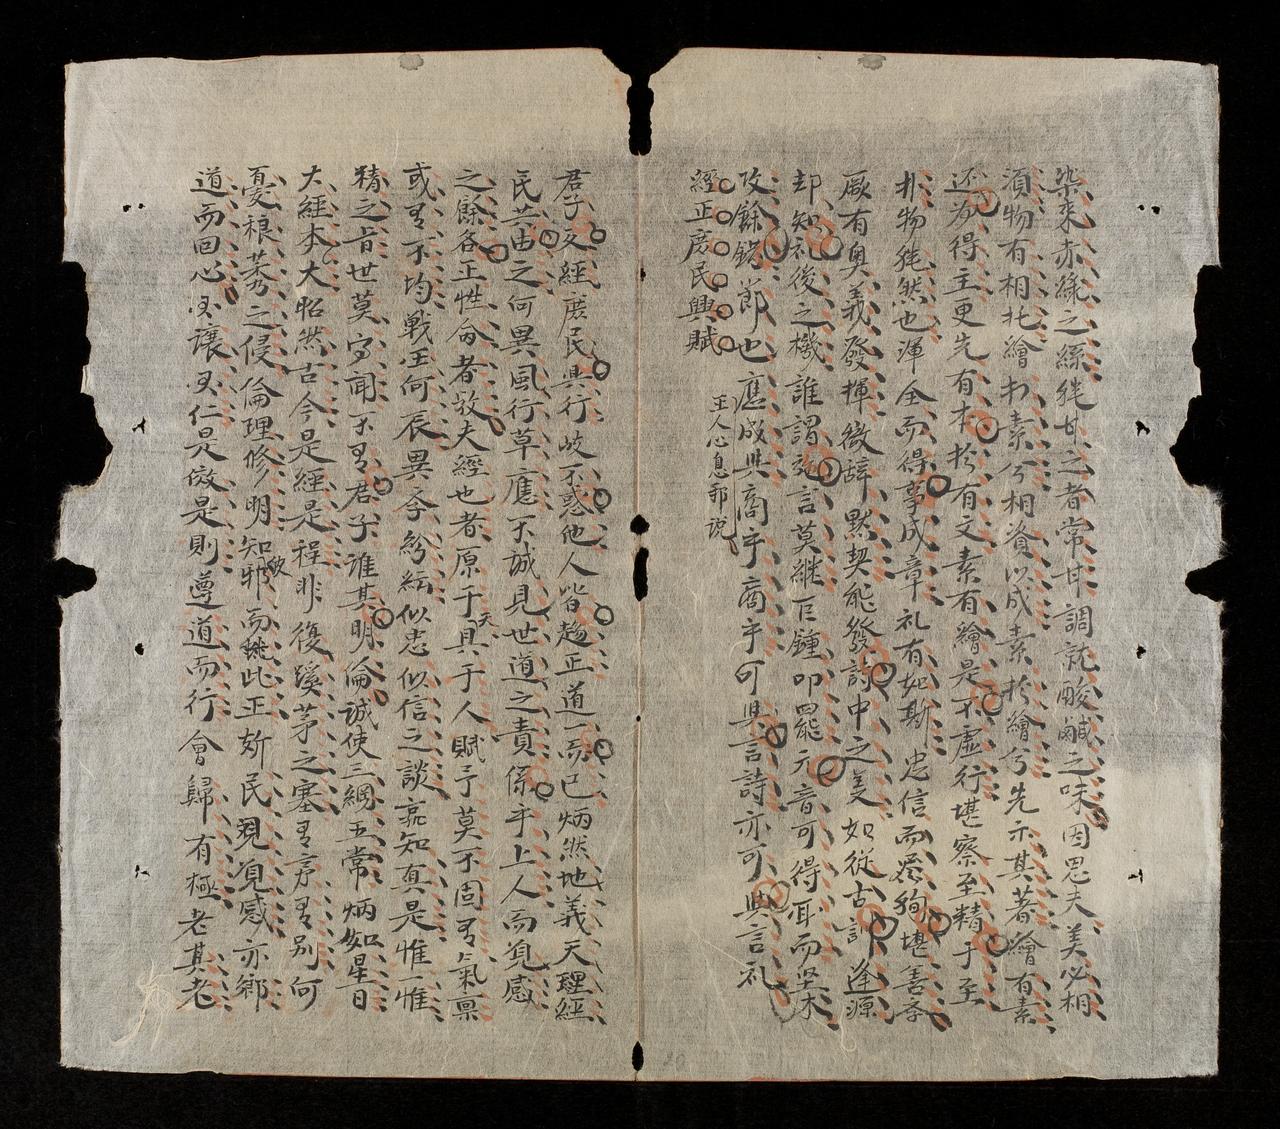 染来赤綠之絲純甘之者常甘調就酸鹹之味因思夫美必相
須物有相北繪扵素兮相資以成素扵繪兮先示其著繪有素
还為得主更先有本扵有文素有繪是不虛行堪察至精于至
朴物純然也渾全而得事成章礼有如斯忠信而
厥有奥義發揮微辞黙契能發詩中之美如從古訓逢源
却知礼後之機誰謂遊言莫継巨鍾叩罷元音可得耳而坚木
攻餘鋭節也應成與商乎商乎可與言詩亦可與言礼
經正庶民興賦 王人心息邪説
君子反經庶民興行岐不惑他人皆趨正道一而已炳然地義天理經
民共由之何異風行草應不誠見世道之責係乎上人而覓感
之餘各正性侖者故夫經也者原于天具于人賦予莫不固有氣禀
或有不均戰王何辰異孝紛紜似忠似信之談孰知真是惟一惟
精之旨世莫寡聞不有君子誰其明倫誠使三綱五常炳如星日
大經本大昭然古今是經是程非復蹊茅之塞有序有别何
憂稂莠之侵倫理修明知邪而此正斯民親覓感亦鄉
道而囬心興讓興仁是倣是則遵道而行會歸有極老其老